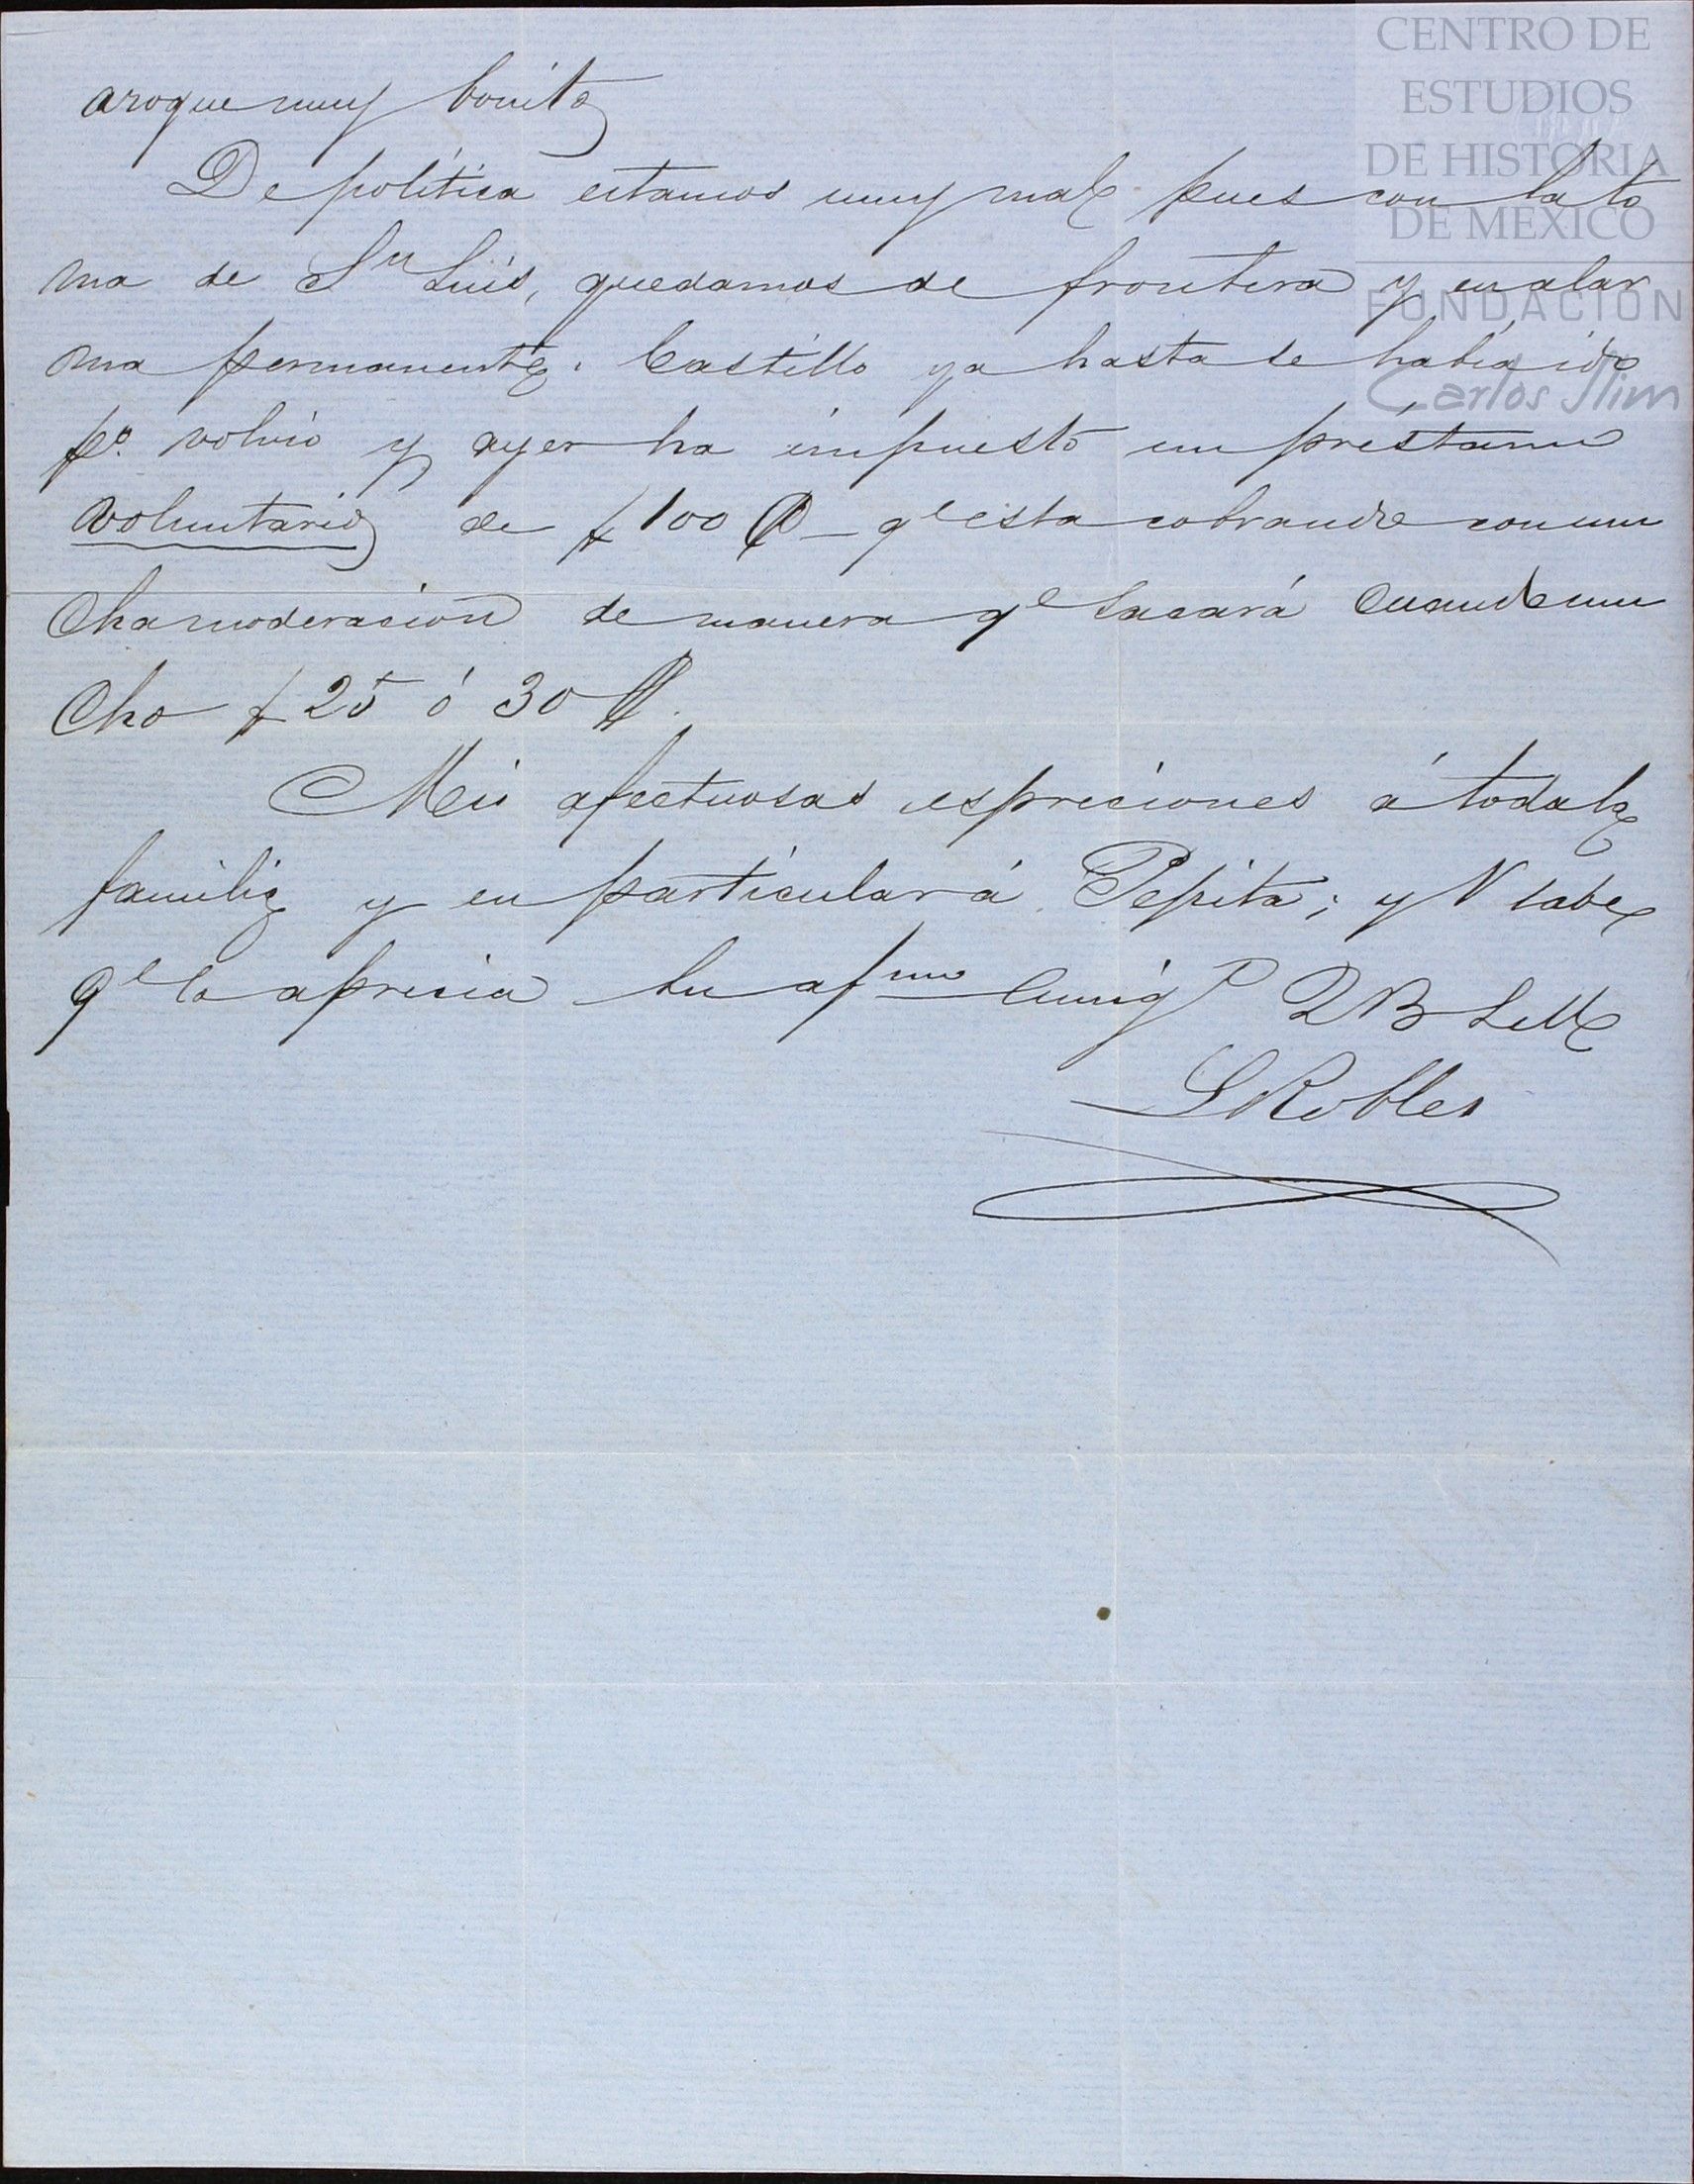 CENTRO DE
ESTUDIOS
DE HISTORIA
DE MEXICO
FUNDACION
Carlos Slim
aroque muy bonito
De política estamos muy mal pues con la to
ma de Sn Luis, quedamos de frontera y en alar
ma permanente. Castillo ya hasta se había ido
po. volvió y ayer ha impuesto un préstamo
voluntario de $100 @ - qe esta cobrando con mu
cha moderacion de manera qe sacará cuando mu
cho $25 ó 30 @.
Mis afectuosas espreciones á toda la
familia y en particular á Pepita; y V sabe
qe lo aprecia su afmo amigo Q B S M
S Robles